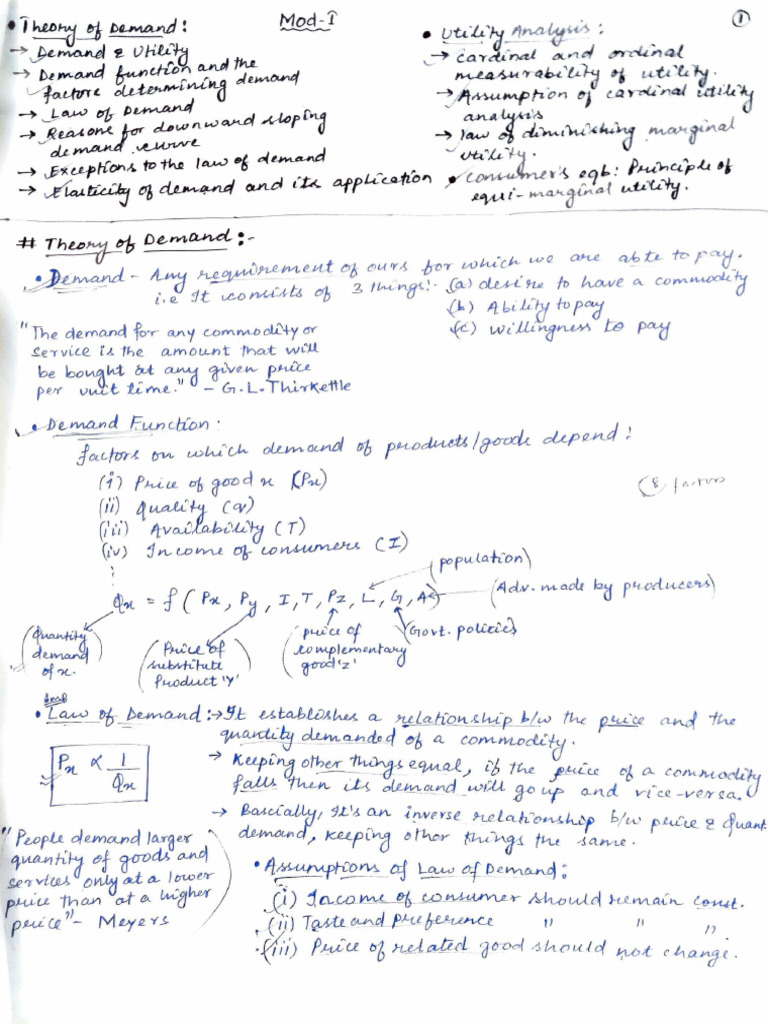 Mod-I
①
• Theory of Demand:
→ Demand & Utility
→ Demand function and the
factors determining demand
→ Law of Demand
→ Reasons for downward sloping
demand curve
→ Exceptions to the law of demand
→ Elasticity of demand and its application
• Utility Analysis:
→ cardinal and ordinal
measurability of utility.
→ Assumption of cardinal utility
analysis
→ law of diminishing marginal
utility.
• Consumer's eqb: Principle of
equi-marginal utility.
# Theory of Demand:-
• Demand - Any requirement of ours for which we are able to pay.
i.e It consists of 3 things:- (a) desire to have a commodity
(b) Ability to pay
(c) willingness to pay
"The demand for any commodity or
service is the amount that will
be bought at any given price
per unit time." - G.L. Thirkettle
• Demand Function:
factors on which demand of products/goods depend:
(i) Price of good x (Px)
(ii) Quality (q)
(iii) Availability (T)
(iv) Income of consumers (I)
⋮
(8 factors
(population)
Qx = f (Px, Py, I, T, Pz, L, G, A)
(Adv. made by producers)
(Quantity
demand
of x.)
(Price of
substitute
Product 'Y')
(price of
complementary
good 'z')
(Govt. policies
Imp
• Law of Demand:→ It establoshes a relationship b/w the price and the
quantity demanded of a commodity.
Px ∝ 1/Qx
→ Keeping other things equal, if the price of a commodity
falls then its demand will go up and vice-versa.
→ Bascially, It's an inverse relationship b/w price & quant.
demand, keeping other things the same.
"People demand larger
quantity of goods and
services only at a lower
price than at a higher
price" - Meyers
• Assumptions of Law of Demand:
(i) Income of consumer should remain const.
(ii) Taste and preference " " ".
(iii) Price of related good should not change.